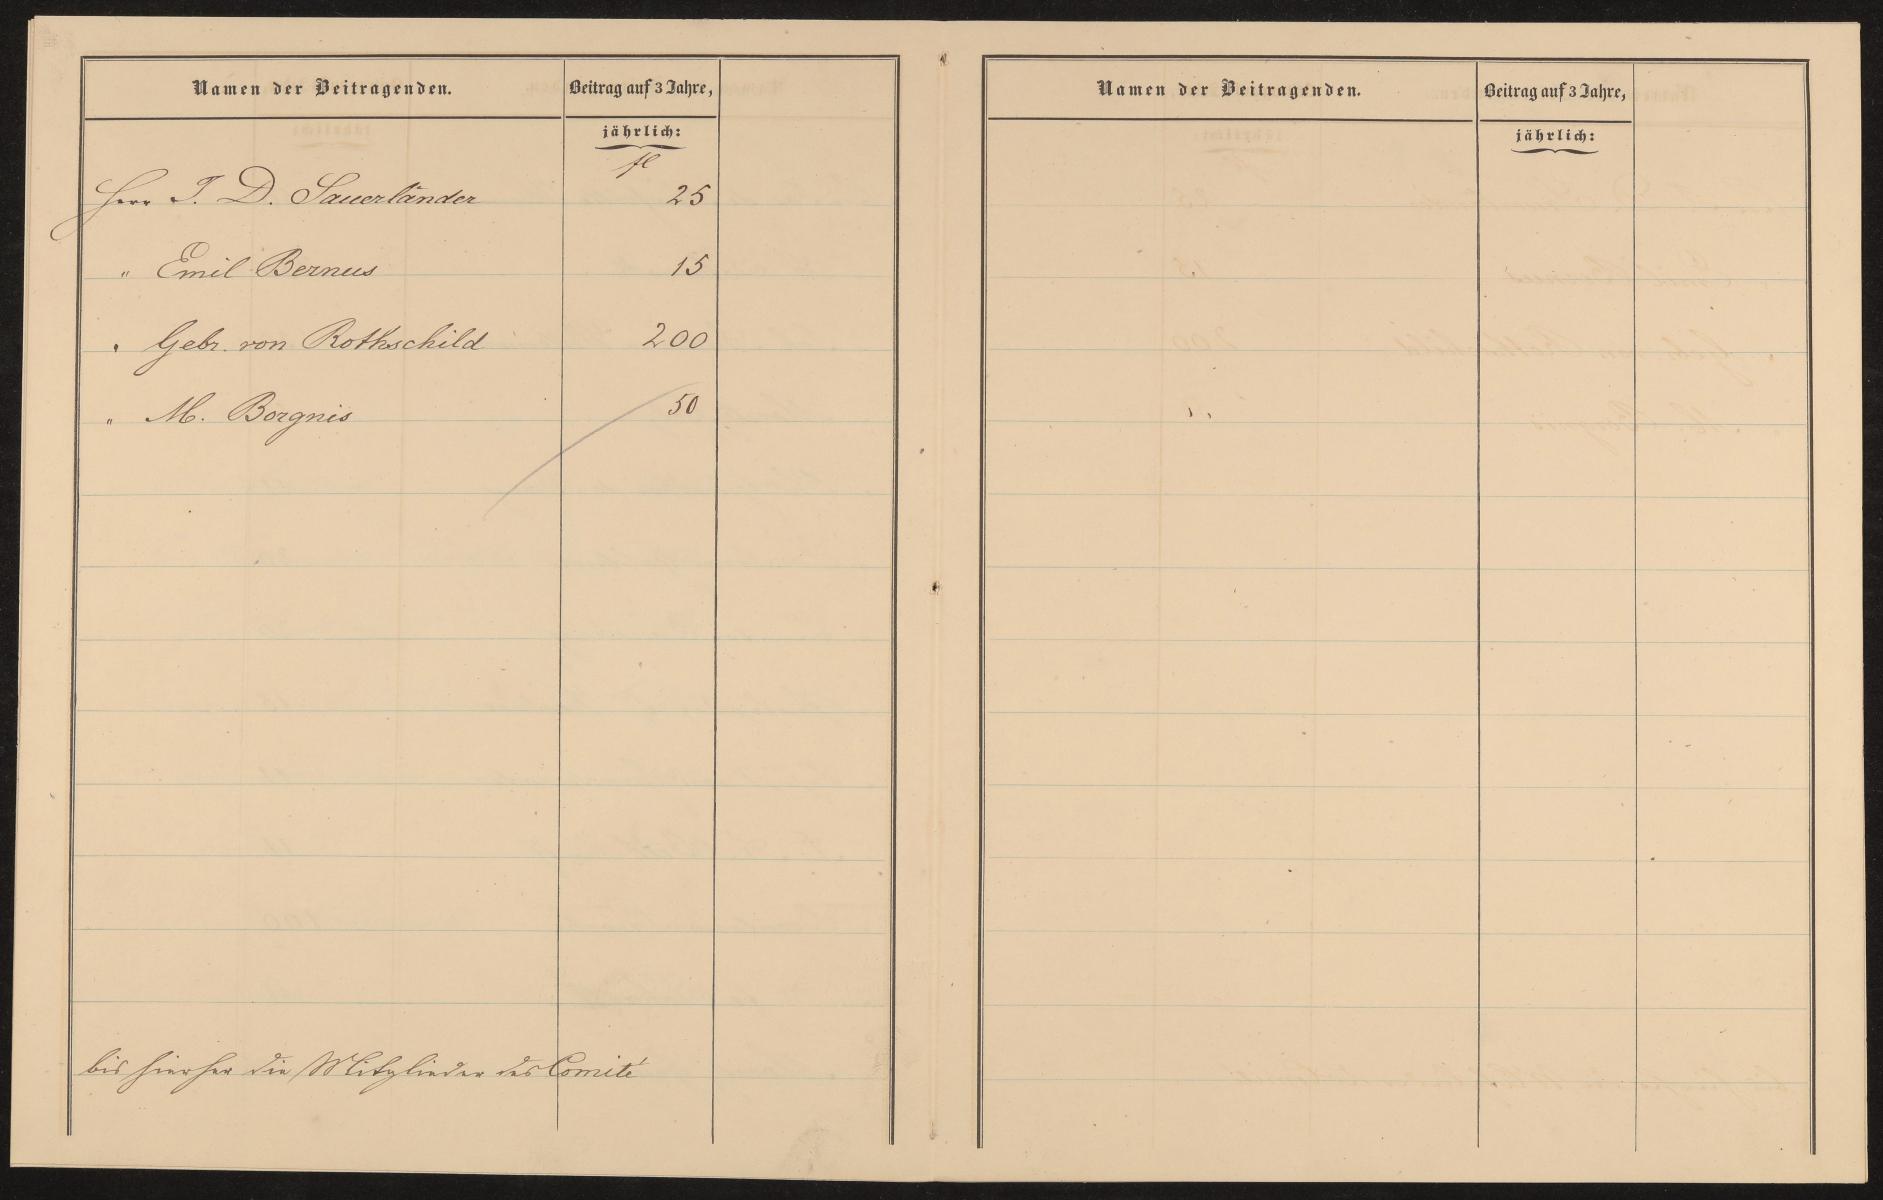 Namen der Beitragenden. Beitrag auf 3 Jahre,
jährlich:
fl
Herr J. D. Sauerländer 25
" Emil Bernus 15
" Gebr. von Rothschild 200
" M. Borgnis 50
bis hierher die Mitglieder des Comité
Namen der Beitragenden. Beitrag auf 3 Jahre,
jährlich: